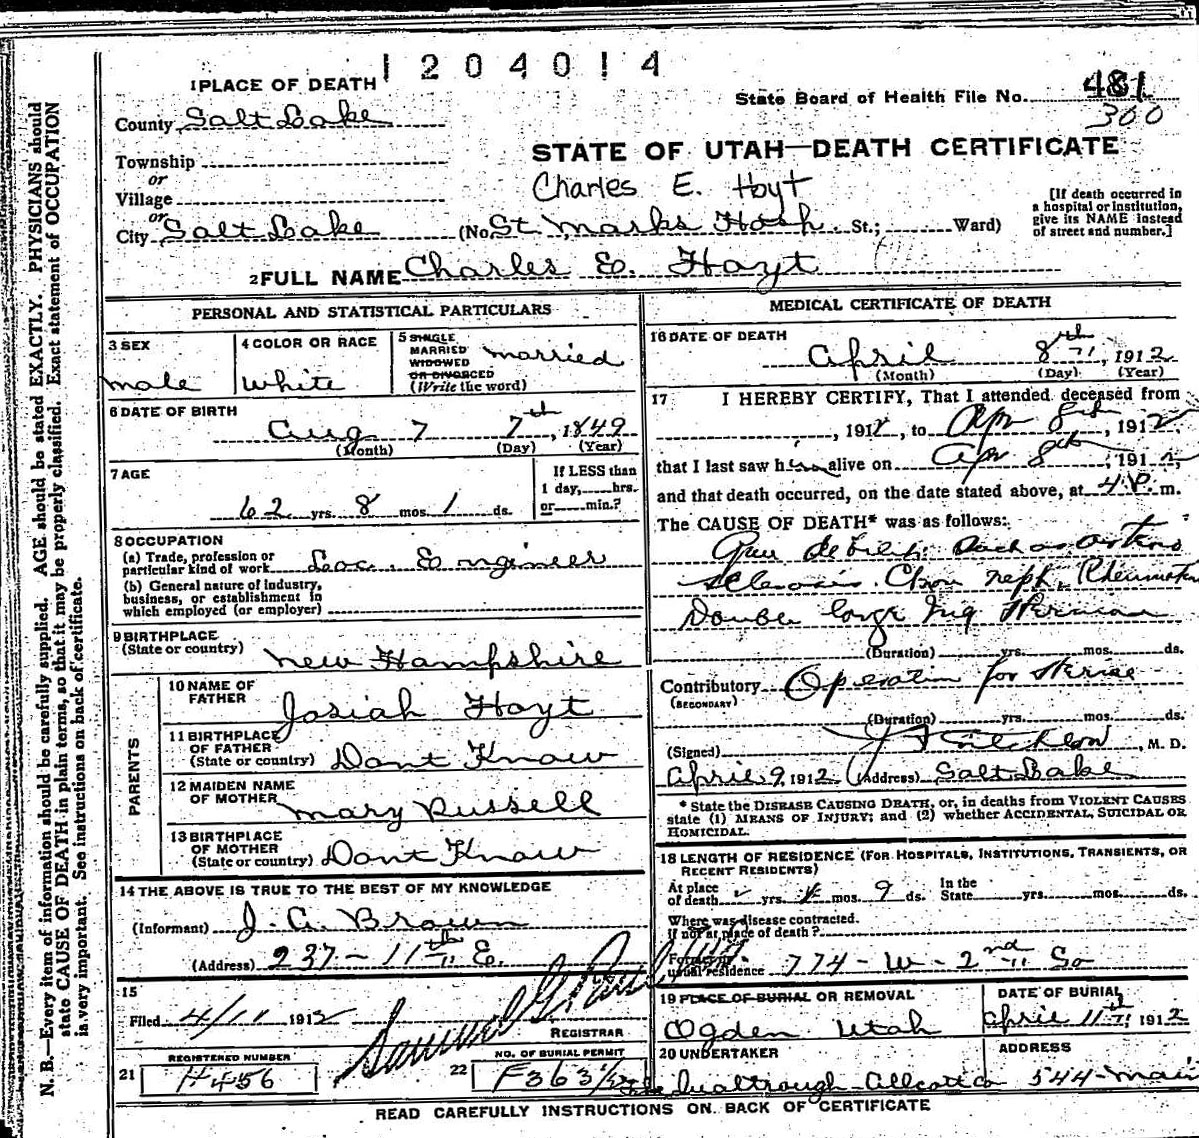 1204014
1 PLACE OF DEATH
State Board of Health File No. 481
300
County Salt Lake
STATE OF UTAH—DEATH CERTIFICATE
Township
or
Village
Charles E. Hoyt
[If death occurred in
a hospital or institution,
give its NAME instead
of street and number.]
or
City Salt Lake (No. St Marks Hosp. St.; Ward)
2 FULL NAME Charles E. Hoyt
PERSONAL AND STATISTICAL PARTICULARS
3 SEX
male
4 COLOR OR RACE
White
5 SINGLE
MARRIED
WIDOWED
OR DIVORCED
(Write the word)
married
6 DATE OF BIRTH
Aug 7 7th, 1849
(Month) (Day) (Year)
7 AGE
62 yrs. 8 mos. 1 ds.
If LESS than
1 day, hrs.
or min.?
8 OCCUPATION
(a) Trade, profession or
particular kind of work Loc. Engineer
(b) General nature of industry,
business, or establishment in
which employed (or employer)
9 BIRTHPLACE
(State or country) New Hampshire
PARENTS
10 NAME OF
FATHER Josiah Hoyt
11 BIRTHPLACE
OF FATHER
(State or country) Dont Know
12 MAIDEN NAME
OF MOTHER Mary Russell
13 BIRTHPLACE
OF MOTHER
(State or country) Dont Know
14 THE ABOVE IS TRUE TO THE BEST OF MY KNOWLEDGE
(Informant) J. G. Brown
(Address) 237 - 11th E.
15
Filed 4/11 1912
Samuel G. Paul
REGISTRAR
REGISTERED NUMBER
21 H456
NO. OF BURIAL PERMIT
22 F363
MEDICAL CERTIFICATE OF DEATH
16 DATE OF DEATH
April 8th, 1912
(Month) (Day) (Year)
17 I HEREBY CERTIFY, That I attended deceased from
, 1912, to Apr 8th, 1912
that I last saw him alive on Apr 8th, 1912,
and that death occurred, on the date stated above, at 4 P. m.
The CAUSE OF DEATH* was as follows:
Gen debility.
sclerosis. Chron neph. Rheumatism
Double large Ing Hernia
(Duration) yrs. mos. ds.
Contributory Operation for Hernia
(SECONDARY)
(Duration) yrs. mos. ds.
(Signed) , M. D.
April 9, 1912 (Address) Salt Lake
* State the DISEASE CAUSING DEATH, or, in deaths from VIOLENT CAUSES
state (1) MEANS OF INJURY; and (2) whether ACCIDENTAL, SUICIDAL OR
HOMICIDAL.
18 LENGTH OF RESIDENCE (FOR HOSPITALS, INSTITUTIONS, TRANSIENTS, OR
RECENT RESIDENTS)
At place
of death yrs. mos. 9 ds.
In the
State yrs. mos. ds.
Where was disease contracted.
if not at place of death?
Former or
usual residence 774 - W - 2nd So
19 PLACE OF BURIAL OR REMOVAL
Ogden Utah
DATE OF BURIAL
April 11th 1912
20 UNDERTAKER
ADDRESS
544 - Main
READ CAREFULLY INSTRUCTIONS ON BACK OF CERTIFICATE
N. B.—Every item of information should be carefully supplied. AGE should be stated EXACTLY. PHYSICIANS should
state CAUSE OF DEATH in plain terms, so that it may be properly classified. Exact statement of OCCUPATION
is very important. See instructions on back of certificate.